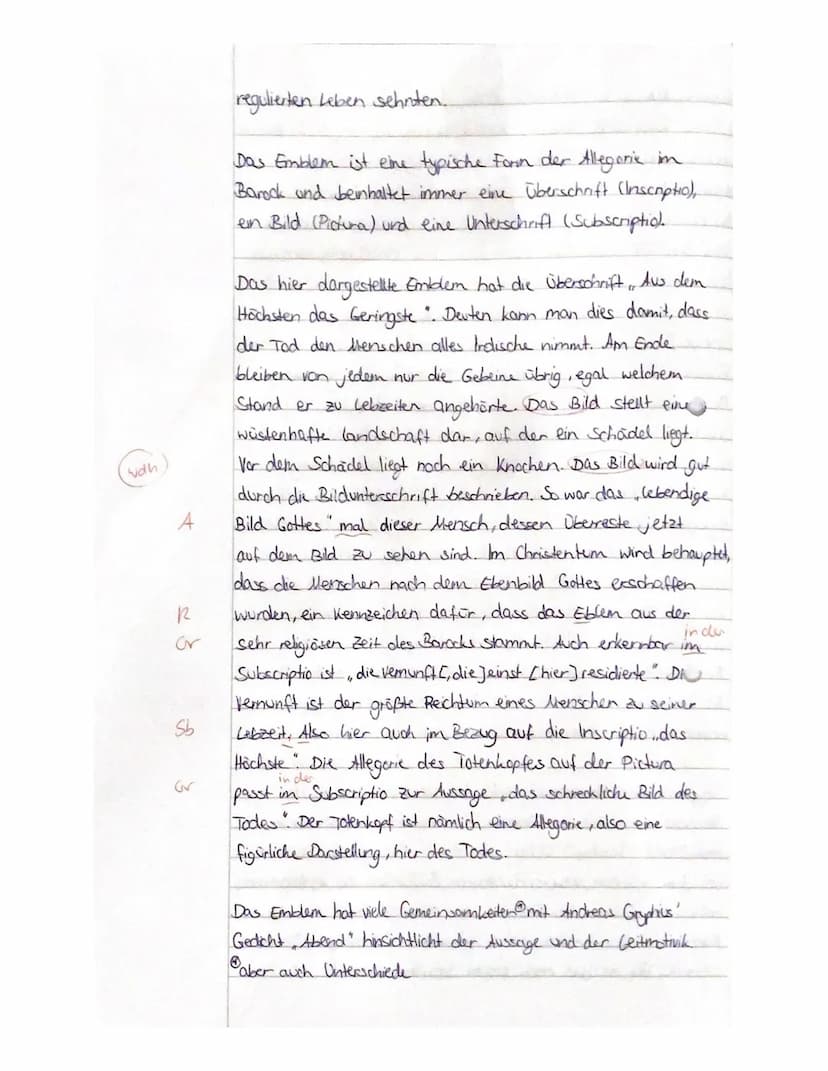 regulierten Leben sehnten.
Das Emblem ist eine typische Form der Allegorie im
Barock und beinhaltet immer eine Überschrift (Inscriptio),
ein Bild (Pictura) und eine Unterschrift (Subscriptio).
Das hier dargestellte Emblem hat die Überschrift „Aus dem
Höchsten das Geringste“. Deuten kann man dies damit, dass
der Tod den Menschen alles Irdische nimmt. Am Ende
bleiben von jedem nur die Gebeine übrig, egal welchem
Stand er zu Lebzeiten angehörte. Das Bild stellt eine
wüstenhafte Landschaft dar, auf der ein Schädel liegt.
wdh Vor dem Schädel liegt noch ein Knochen. Das Bild wird gut
durch die Bildunterschrift beschrieben. So war das „lebendige
A Bild Gottes“ mal dieser Mensch, dessen Überreste jetzt
auf dem Bild zu sehen sind. Im Christentum wird behauptet,
dass die Menschen nach dem Ebenbild Gottes erschaffen
R wurden, ein Kennzeichen dafür, dass das Eblem aus der
in der
Gr sehr religiösen Zeit des Barocks stammt. Auch erkennbar im
Subscriptio ist „die Vernunft[, die] einst [hier] residierte“. Di
Vernunft ist der größte Reichtum eines Menschen zu seiner
Sb Lebzeit, Also hier auch im Bezug auf die Inscriptio „das
Höchste“. Die Allegorie des Totenkopfes auf der Pictura
in der
Gr passt im Subscriptio zur Aussage „das schreckliche Bild des
Todes“. Der Totenkopf ist nämlich eine Allegorie, also eine
figürliche Darstellung, hier des Todes.
Das Emblem hat viele Gemeinsamkeiten mit Andreas Gryphius'
Gedicht „Abend“ hinsichtlicht der Aussage und der Leitmotivik
aber auch Unterschiede